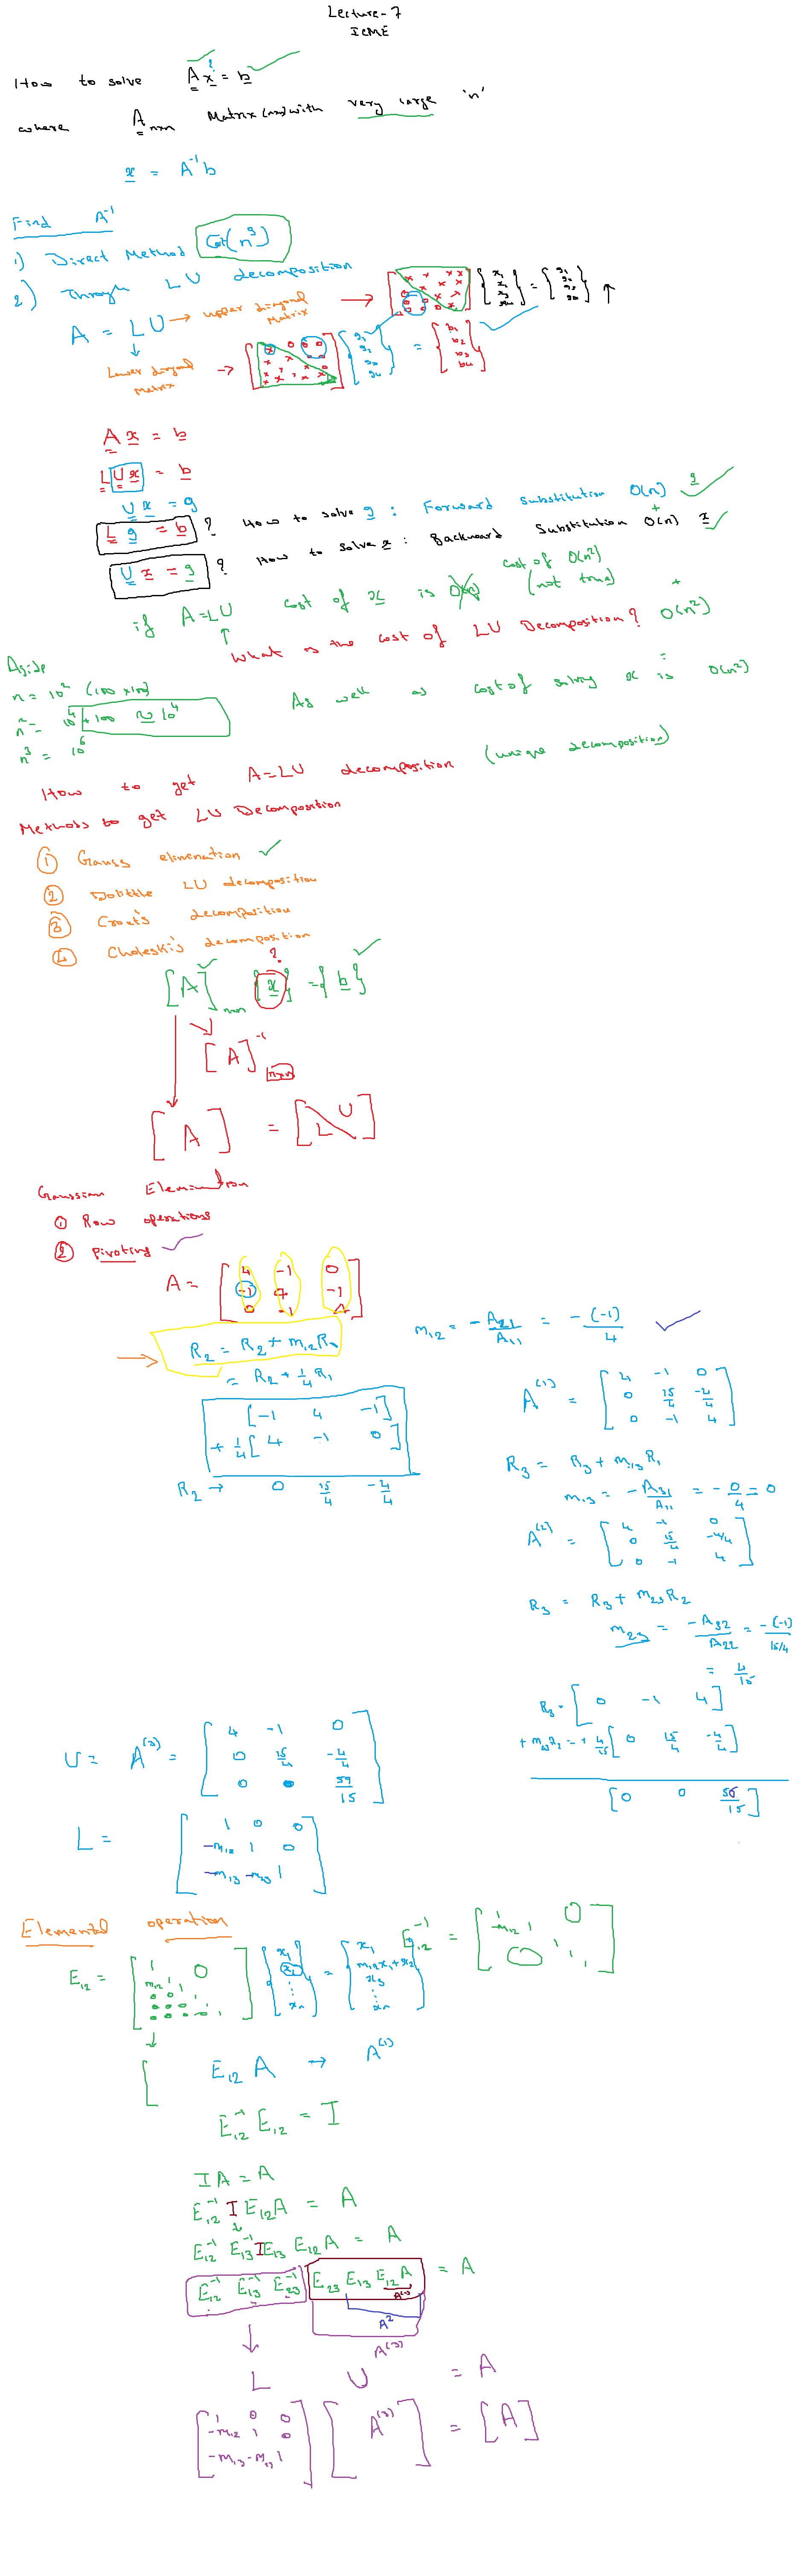 Lecture-7
ICME
How to solve A x = b
?
where A nxn Matrix (nxn) with very large 'n'
x = A⁻¹ b
Find A⁻¹
1) Direct Method Cost(n³)
2) Through LU decomposition
A = LU → upper diagonal Matrix →
↓
Lower diagonal Matrix →
A x = b
L U x = b
U x = g
L g = b ? How to solve g : Forward substitution O(n) g
+
U x = g ? How to solve x : Backward Substitution O(n) x
cost of O(n²)
if A=LU cost of x is O(n) (not true)
↑
What is the cost of LU Decomposition? O(n²)
Aside
n = 10² (100 x 100)
As well as cost of solving x is O(n²)
n² = 10⁴ + 100 ≈ 10⁴
n³ = 10⁶
How to get A=LU decomposition (unique decomposition)
Methods to get LU Decomposition
① Gauss elimination
② Dolittle LU decomposition
③ Crout's decomposition
④ Choleski's decomposition
?
[A] nxn {x} = {b}
[A]⁻¹ nxn
[A] = [L U]
Gaussian Elemination
① Row operations
② Pivoting
A = [4 -1 0
-1 4 -1
0 -1 4]
m12 = -A21/A11 = -(-1)/4
R2 = R2 + m12 R1
= R2 + 1/4 R1
[-1 4 -1]
+ 1/4 [4 -1 0]
R2 → 0 15/4 -4/4
A⁽¹⁾ = [4 -1 0
0 15/4 -4/4
0 -1 4]
R3 = R3 + m13 R1
m13 = -A31/A11 = -0/4 = 0
A⁽²⁾ = [4 -1 0
0 15/4 -4/4
0 -1 4]
R3 = R3 + m23 R2
m23 = -A32/A22 = -(-1)/15/4
= 4/15
R3 = [0 -1 4]
+ m23R2 = + 4/15 [0 15/4 -4/4]
[0 0 56/15]
U = A⁽³⁾ = [4 -1 0
0 15/4 -4/4
0 0 59/15]
L = [1 0 0
-m12 1 0
-m13 -m23 1]
Elemental operation
E12⁻¹ = [1
-m12 1 0
0 1 1]
E12 = [1
m12 1 0
0 0 1
0 0 0 1
0 0 0 0 1] {x1 x2 ⋮ xn} = {x1
m12x1+x2
x3
⋮
xn}
E12 A → A⁽¹⁾
E12⁻¹ E12 = I
I A = A
E12⁻¹ I E12 A = A
E12⁻¹ E13⁻¹ I E13 E12 A = A
E12⁻¹ E13⁻¹ E23⁻¹ E23 E13 E12 A = A
A⁽¹⁾
A²
A⁽³⁾
↓
L U = A
[1 0 0
-m12 1 0
-m13 -m23 1] [A⁽³⁾] = [A]